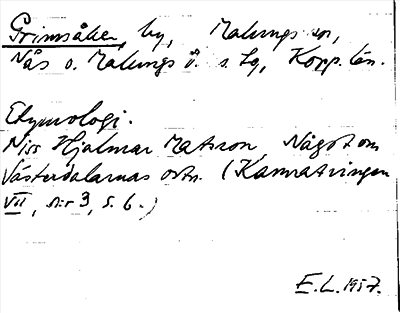 Grimsåker, by, Malungs sn,
Nås o. Malungs ö. s. lg, Kopp. län.
Etymologi.
Niss Hjalmar Matsson Något om
Västerdalarnas ortn. (Kamratringen
VII, nr 3, s. 6.)
E. L. 1957.